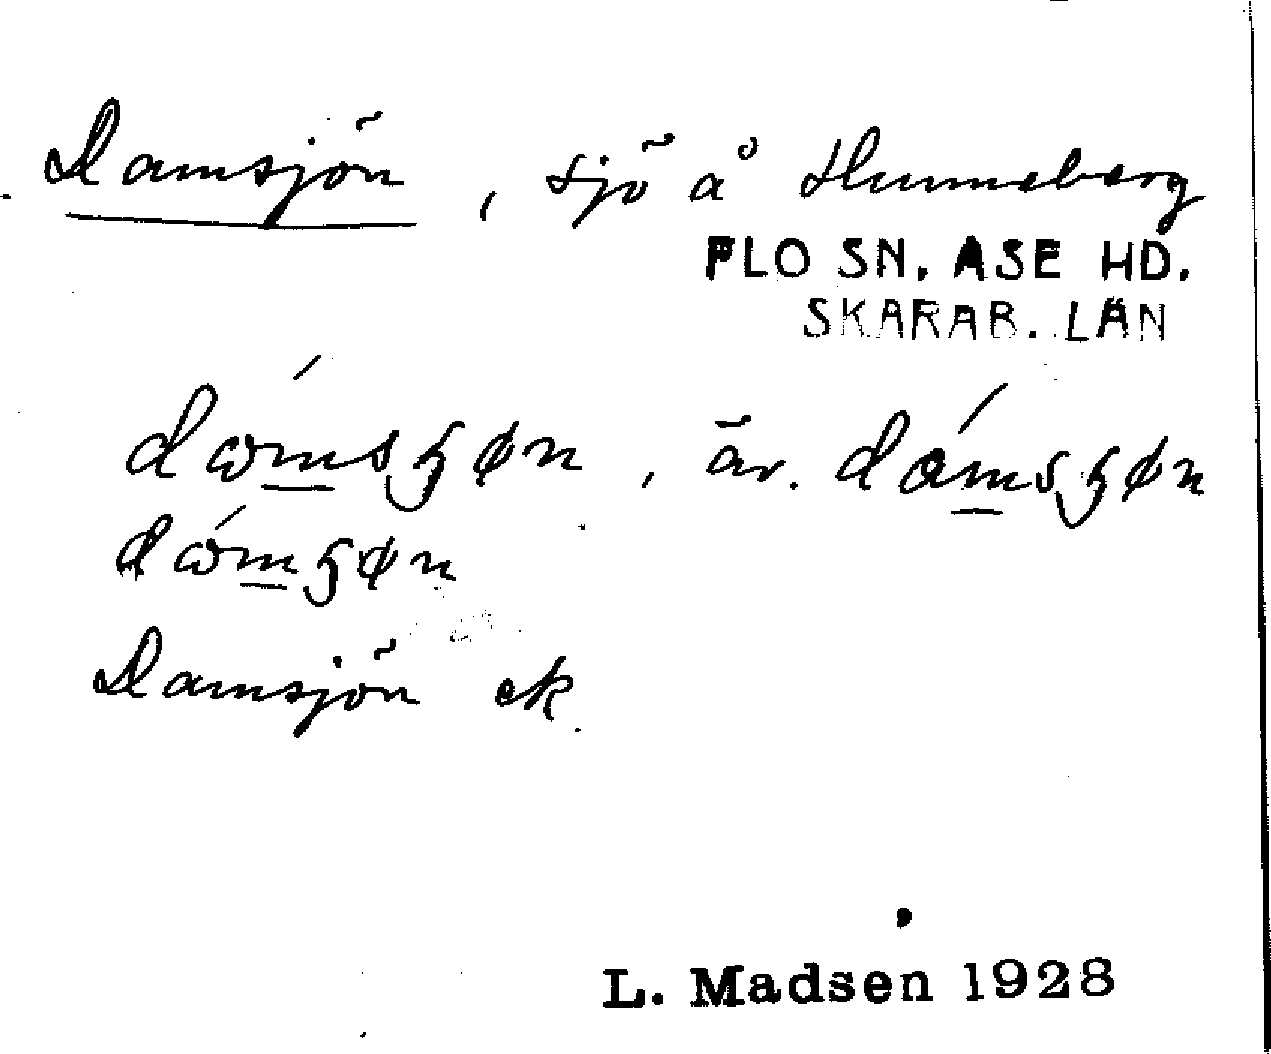 Damsjön, sjö å Hunneberg
FLO SN. ÅSE HD.
SKARAB. LÄN
dωmsɧøn, äv. dámsɧøn
dώmɧøn
Damsjön ek.
L. Madsen 1928